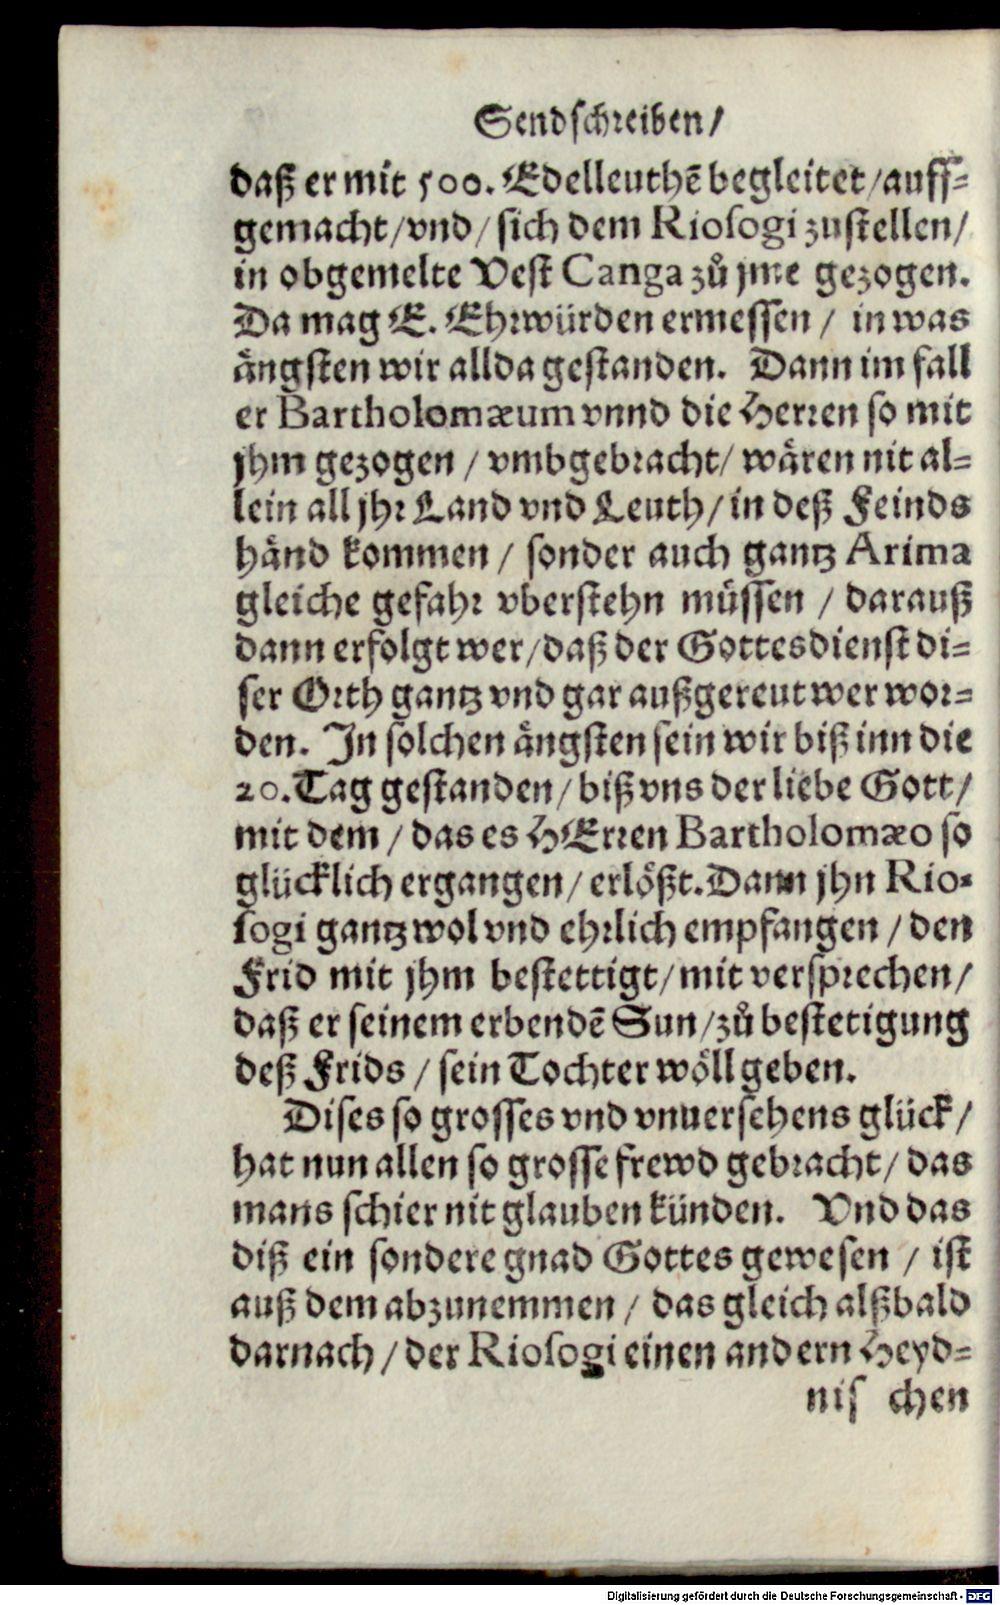 Sendschreiben/
daß er mit 500. Edelleuthẽ begleitet/auff-
gemacht/vnd/sich dem Riosogi zustellen/
in obgemelte Vest Canga zů jme gezogen.
Da mag E. Ehrwürden ermessen/ in was
ängsten wir allda gestanden. Dann im fall
er Bartholomæum vnnd die Herren so mit
jhm gezogen / vmbgebracht/ wären nit al-
lein all jhr Land vnd Leuth/in deß Feinds
händ kommen / sonder auch gantz Arima
gleiche gefahr vberstehn müssen / darauß
dann erfolgt wer/daß der Gottesdienst di-
ser Orth gantz vnd gar außgereut wer wor-
den. In solchen ängsten sein wir biß inn die
20. Tag gestanden/ biß vns der liebe Gott/
mit dem / das es HErren Bartholomæo so
glücklich ergangen/ erlößt. Dann jhn Rio-
sogi gantz wol vnd ehrlich empfangen / den
Frid mit jhm bestettigt/mit versprechen/
daß er seinem erbendẽ Sun/zů bestetigung
deß Frids / sein Tochter wöll geben.
Dises so grosses vnd vnuersehens glück/
hat nun allen so grosse frewd gebracht/ das
mans schier nit glauben künden. Vnd das
diß ein sondere gnad Gottes gewesen / ist
auß dem abzunemmen / das gleich alßbald
darnach/der Riosogi einen andern Heyd-
nis chen
Digitalisierung gefördert durch die Deutsche Forschungsgemeinschaft - DFG